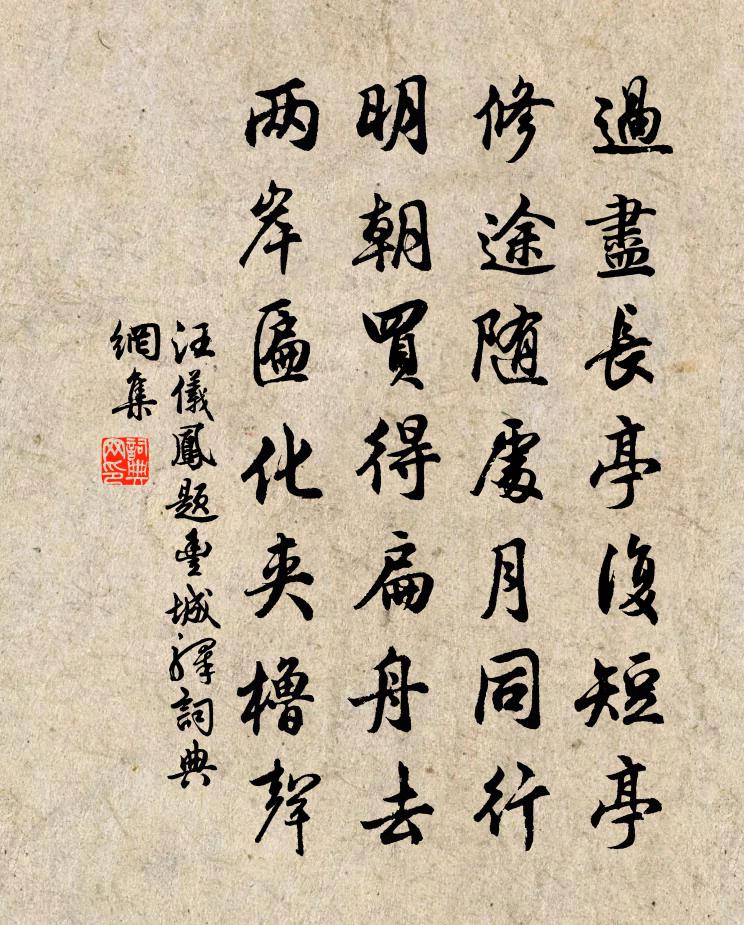 過盡長亭復短亭
修途随處月同行
明朝買得扁舟去
两岸匾化夾櫓聲
汪儀鳳題豐城驛詞典
網集
詞典
网印